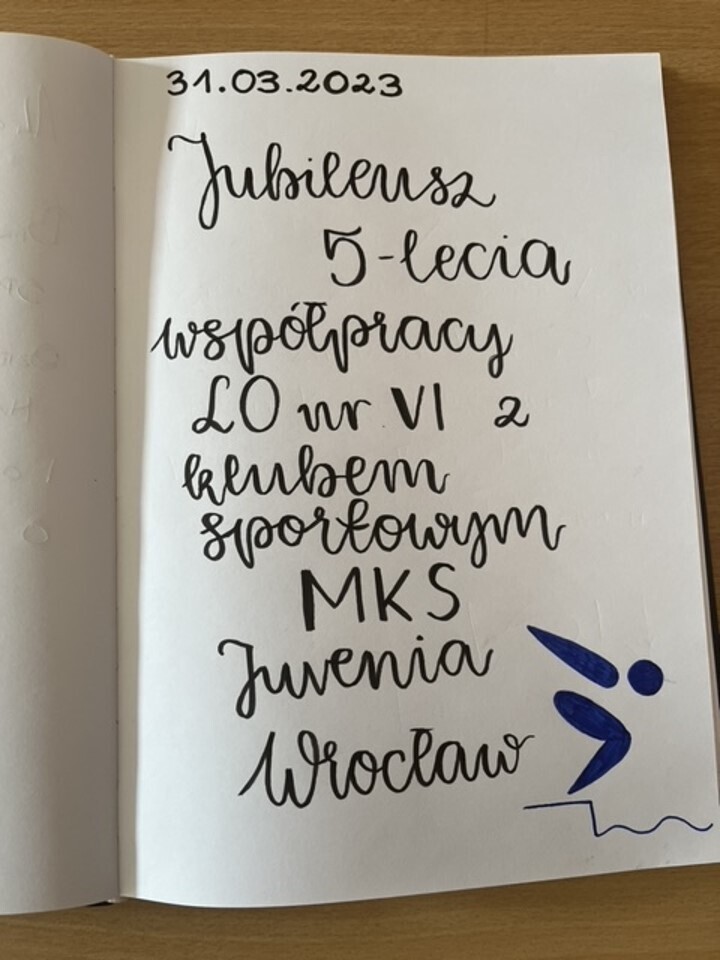 31.03.2023
Jubileusz
5-lecia
współpracy
LO nr VI z
klubem
sportowym
MKS
Juvenia
Wrocław